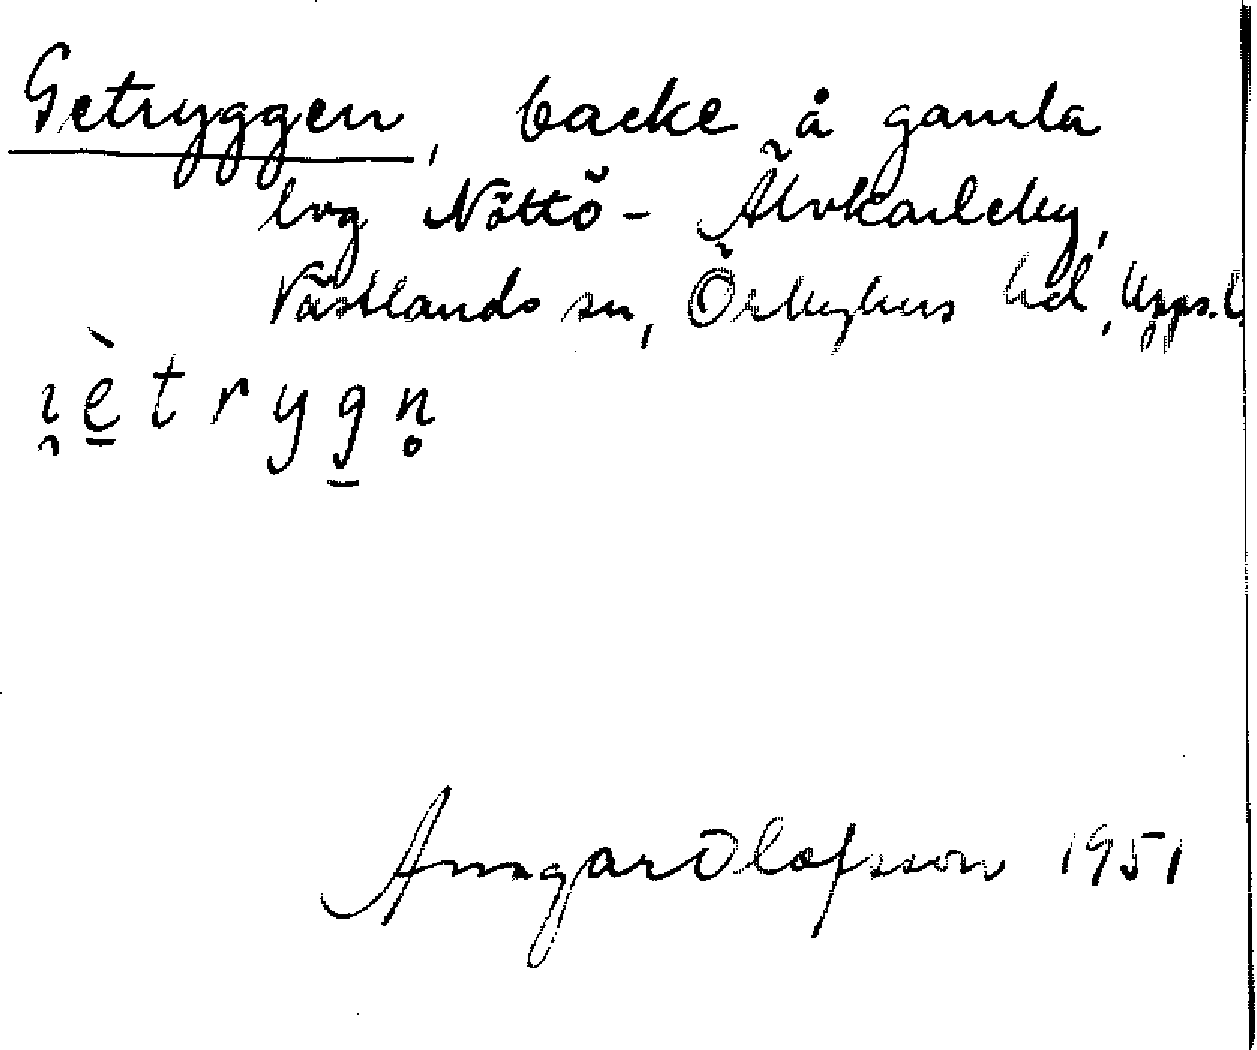 Getryggen, backe å gamla
lvg Nöttö - Älvkarleby,
Västlands sn, Örbyhus hd, Upps. l.
i̯è̠tryg̠n̥
Ansgar Olofsson 1951